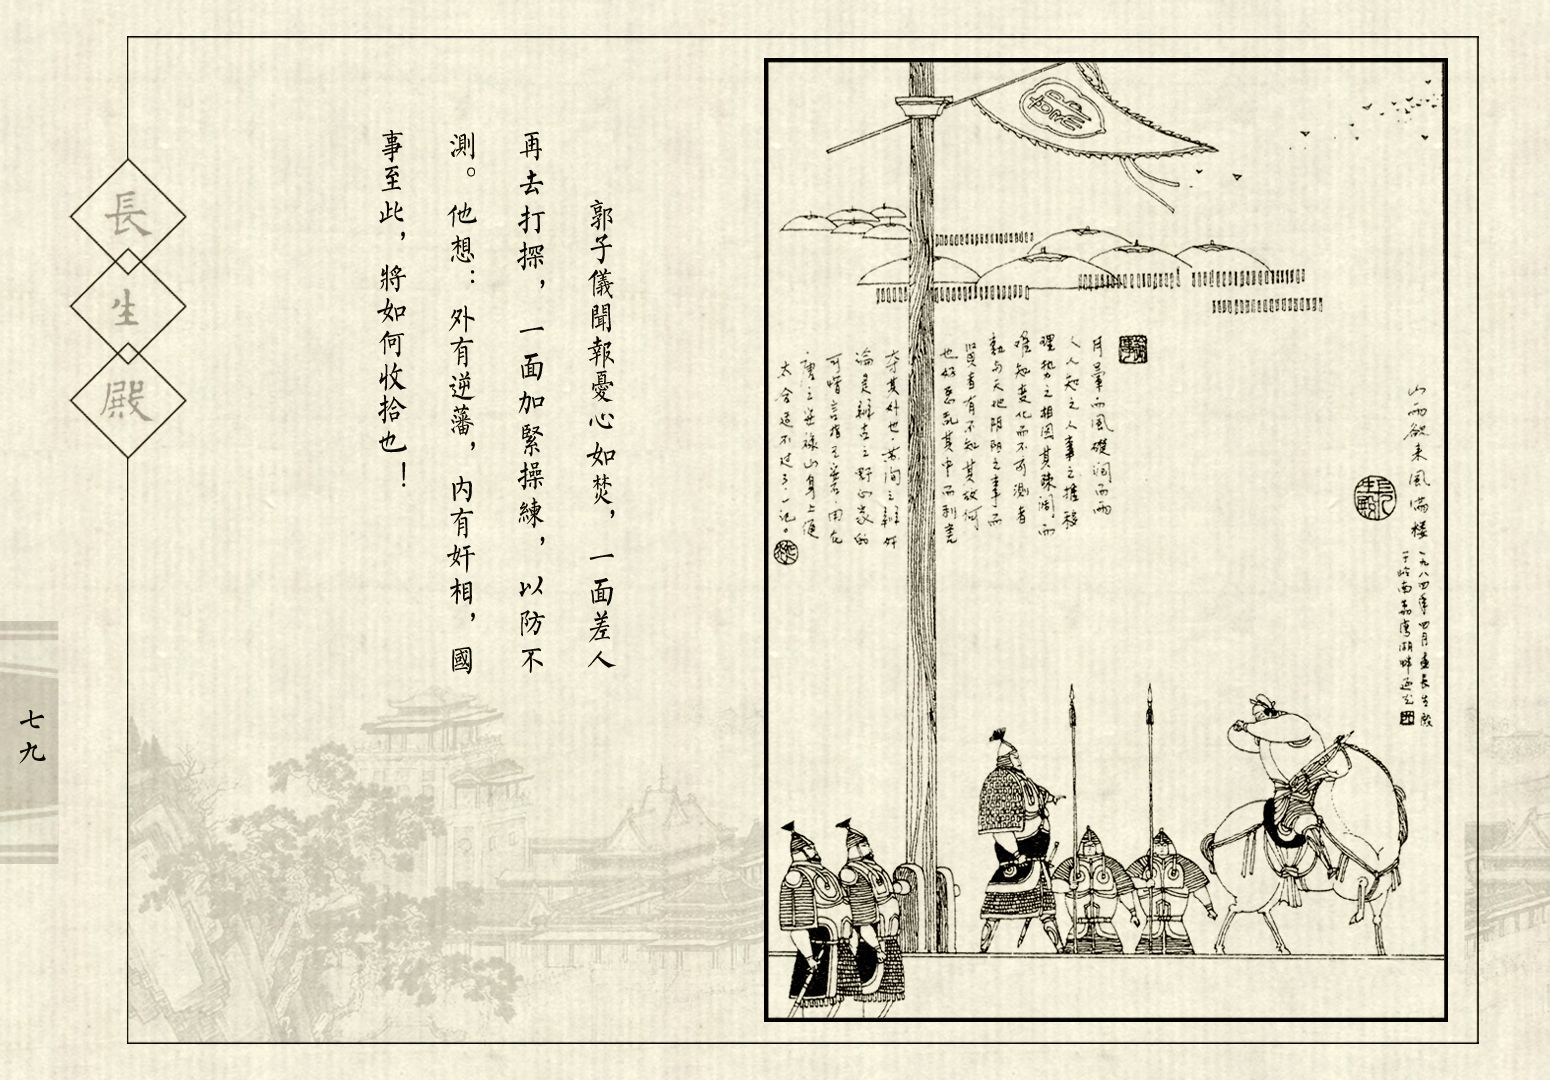 山雨欲来風満楼
一九八四年四月畫長生殿
月暈而風礎润而雨
人人知之人事之推移
理势之相因其疎阔而
难知变化而不可測者
孰与天地阴阳之事而
賢者有不知其故何
也好惡乱其中而利害
夺其外也
郭子儀聞報憂心如焚，一面差人
再去打探，一面加緊操練，以防不
測。他想：外有逆藩，內有奸相，國
事至此，將如何收拾也！
長生殿
七九